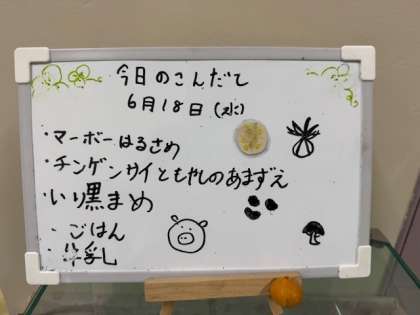 今日のこんだて
6月18日(水)
・マーボーはるさめ
・チンゲンサイともやしのあまずえ
・いり黒まめ
・ごはん
・牛乳